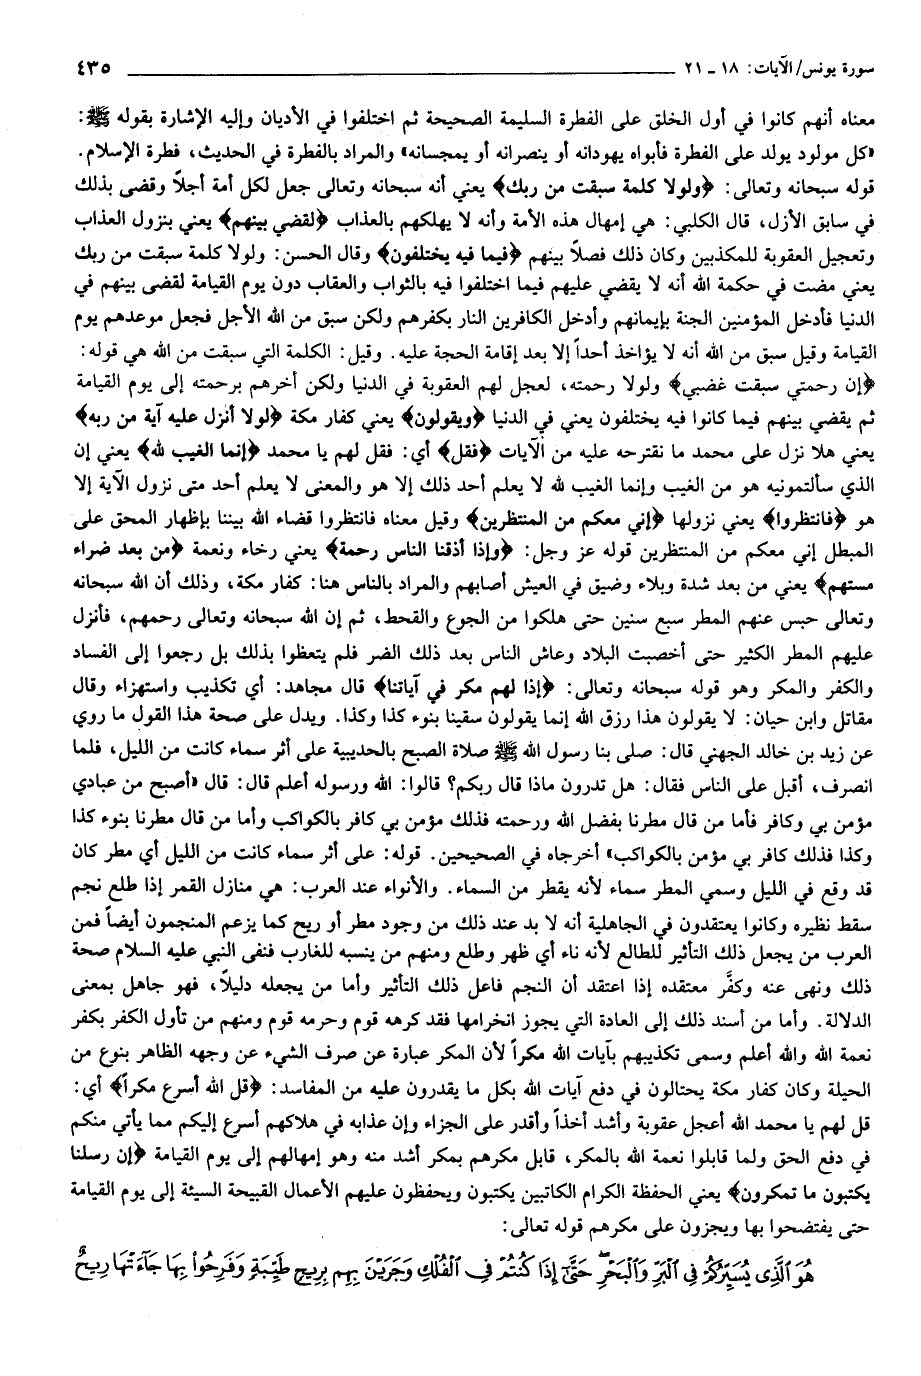 سورة يونس/ الآيات: ١٨ - ٢١ ٤٣٥
معناه أنهم كانوا في أول الخلق على الفطرة السليمة الصحيحة ثم اختلفوا في الأديان وإليه الإشارة بقوله ﷺ:
«كل مولود يولد على الفطرة فأبواه يهودانه أو ينصرانه أو يمجسانه» والمراد بالفطرة في الحديث، فطرة الإسلام.
قوله سبحانه وتعالى: ﴿ولولا كلمة سبقت من ربك﴾ يعني أنه سبحانه وتعالى جعل لكل أمة أجلاً وقضى بذلك
في سابق الأزل، قال الكلبي: هي إمهال هذه الأمة وأنه لا يهلكهم بالعذاب ﴿لقضي بينهم﴾ يعني بنزول العذاب
وتعجيل العقوبة للمكذبين وكان ذلك فصلاً بينهم ﴿فيما فيه يختلفون﴾ وقال الحسن: ولولا كلمة سبقت من ربك
يعني مضت في حكمة الله أنه لا يقضي عليهم فيما اختلفوا فيه بالثواب والعقاب دون يوم القيامة لقضى بينهم في
الدنيا فأدخل المؤمنين الجنة بإيمانهم وأدخل الكافرين النار بكفرهم ولكن سبق من الله الأجل فجعل موعدهم يوم
القيامة وقيل سبق من الله أنه لا يؤاخذ أحداً إلا بعد إقامة الحجة عليه. وقيل: الكلمة التي سبقت من الله هي قوله:
﴿إن رحمتي سبقت غضبي﴾ ولولا رحمته، لعجل لهم العقوبة في الدنيا ولكن أخرهم برحمته إلى يوم القيامة
ثم يقضي بينهم فيما كانوا فيه يختلفون يعني في الدنيا ﴿ويقولون﴾ يعني كفار مكة ﴿لولا أنزل عليه آية من ربه﴾
يعني هلا نزل على محمد ما نقترحه عليه من الآيات ﴿فقل﴾ أي: فقل لهم يا محمد ﴿إنما الغيب لله﴾ يعني إن
الذي سألتمونيه هو من الغيب وإنما الغيب لله لا يعلم أحد ذلك إلا هو والمعنى لا يعلم أحد متى نزول الآية إلا
هو ﴿فانتظروا﴾ يعني نزولها ﴿إني معكم من المنتظرين﴾ وقيل معناه فانتظروا قضاء الله بيننا بإظهار المحق على
المبطل إني معكم من المنتظرين قوله عز وجل: ﴿وإذا أذقنا الناس رحمة﴾ يعني رخاء ونعمة ﴿من بعد ضراء
مستهم﴾ يعني من بعد شدة وبلاء وضيق في العيش أصابهم والمراد بالناس هنا: كفار مكة، وذلك أن الله سبحانه
وتعالى حبس عنهم المطر سبع سنين حتى هلكوا من الجوع والقحط، ثم إن الله سبحانه وتعالى رحمهم، فأنزل
عليهم المطر الكثير حتى أخصبت البلاد وعاش الناس بعد ذلك الضر فلم يتعظوا بذلك بل رجعوا إلى الفساد
والكفر والمكر وهو قوله سبحانه وتعالى: ﴿إذا لهم مكر في آياتنا﴾ قال مجاهد: أي تكذيب واستهزاء وقال
مقاتل وابن حيان: لا يقولون هذا رزق الله إنما يقولون سقينا بنوء كذا وكذا. ويدل على صحة هذا القول ما روي
عن زيد بن خالد الجهني قال: صلى بنا رسول الله ﷺ صلاة الصبح بالحديبية على أثر سماء كانت من الليل، فلما
انصرف، أقبل على الناس فقال: هل تدرون ماذا قال ربكم؟ قالوا: الله ورسوله أعلم قال: قال «أصبح من عبادي
مؤمن بي وكافر فأما من قال مطرنا بفضل الله ورحمته فذلك مؤمن بي كافر بالكواكب وأما من قال مطرنا بنوء كذا
وكذا فذلك كافر بي مؤمن بالكواكب» أخرجاه في الصحيحين. قوله: على أثر سماء كانت من الليل أي مطر كان
قد وقع في الليل وسمي المطر سماء لأنه يقطر من السماء. والأنواء عند العرب: هي منازل القمر إذا طلع نجم
سقط نظيره وكانوا يعتقدون في الجاهلية أنه لا بد عند ذلك من وجود مطر أو ريح كما يزعم المنجمون أيضاً فمن
العرب من يجعل ذلك التأثير للطالع لأنه ناء أي ظهر وطلع ومنهم من ينسبه للغارب فنفى النبي عليه السلام صحة
ذلك ونهى عنه وكفَّر معتقده إذا اعتقد أن النجم فاعل ذلك التأثير وأما من يجعله دليلاً، فهو جاهل بمعنى
الدلالة. وأما من أسند ذلك إلى العادة التي يجوز انخرامها فقد كرهه قوم وحرمه قوم ومنهم من تأول الكفر بكفر
نعمة الله والله أعلم وسمى تكذيبهم بآيات الله مكراً لأن المكر عبارة عن صرف الشيء عن وجهه الظاهر بنوع من
الحيلة وكان كفار مكة يحتالون في دفع آيات الله بكل ما يقدرون عليه من المفاسد: ﴿قل الله أسرع مكراً﴾ أي:
قل لهم يا محمد الله أعجل عقوبة وأشد أخذاً وأقدر على الجزاء وإن عذابه في هلاكهم أسرع إليكم مما يأتي منكم
في دفع الحق ولما قابلوا نعمة الله بالمكر، قابل مكرهم بمكر أشد منه وهو إمهالهم إلى يوم القيامة ﴿إن رسلنا
يكتبون ما تمكرون﴾ يعني الحفظة الكرام الكاتبين يكتبون ويحفظون عليهم الأعمال القبيحة السيئة إلى يوم القيامة
حتى يفتضحوا بها ويجزون على مكرهم قوله تعالى:
هُوَ ٱلَّذِى يُسَيِّرُكُمْ فِى ٱلْبَرِّ وَٱلْبَحْرِ حَتَّىٰٓ إِذَا كُنتُمْ فِى ٱلْفُلْكِ وَجَرَيْنَ بِهِم بِرِيحٍ طَيِّبَةٍ وَفَرِحُوا۟ بِهَا جَآءَتْهَا رِيحٌ